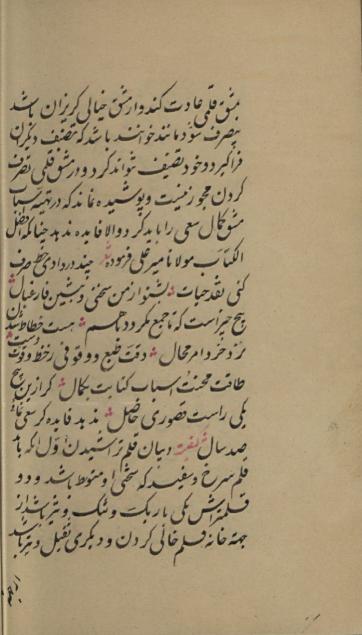 بمشق قلمی عادت کند و از مشق خیالی گریزان باشد
بیصرف شود مانند خوانند باشد که تصنیف دیگران
فراگیرد و خود تصنیف نتواند کرد و در مشق قلمی تصرف
کردن مجوز نیست و پوشیده نماند که در تهیه اسباب
مشق کمال سعی را باید کرد و الا فایده ندهد چنانکه افضل
الکتاب مولانا میر علی فرموده شعر چند در وادی خط صرف
کنی نقد حیات بشنو از من سخنی و بنشین فارغبال
پنج چیز است که تا جمع نگردد با هم هست خطاط شدن
نزد خردامر محال دقت طبع و وقوفی ز خط و قوت دست
طاقت محنت و اسباب کتابت بکمال گر ازین پنج
یکی راست قصوری حاصل ندهد فایده گر سعی نمائی
صد سال بیان قلم تراشیدن اول اگر باید
قلم سرخ و سفید که سختی او متوسط باشد و دو
قلمتراش یکی باریک و تنک و تیز باشد از
جهته خانه قلم خالی کردن و دیگری ثقیل و تیز باشد